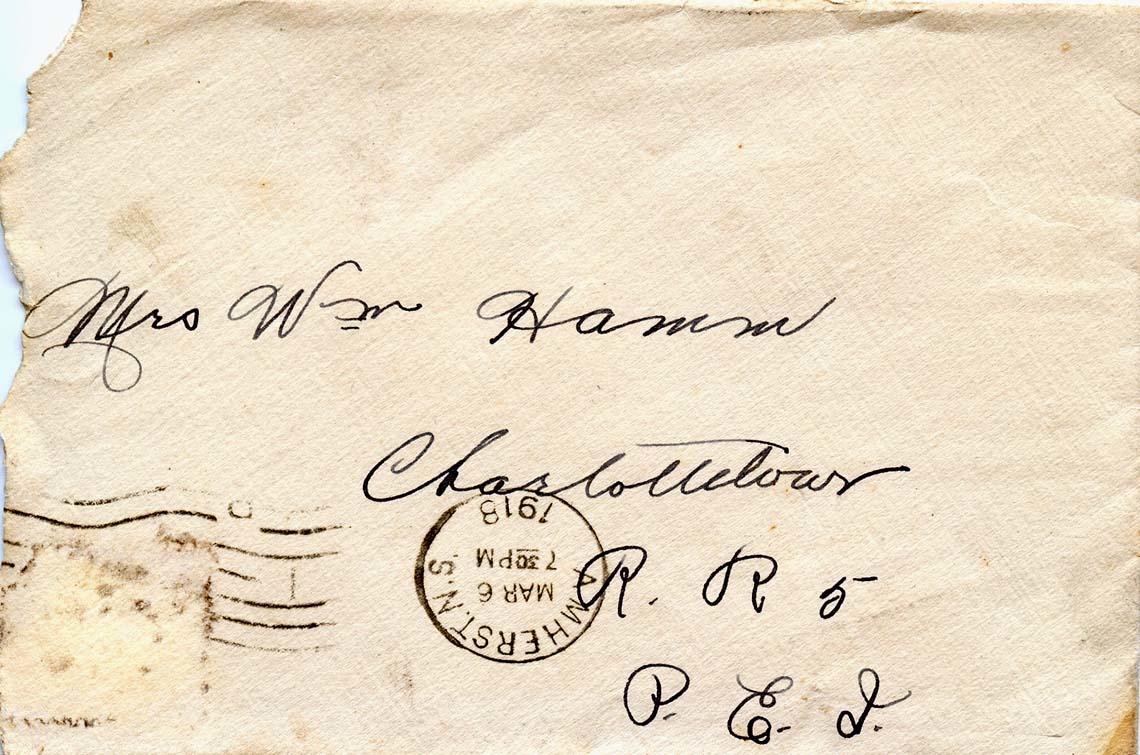 Mrs Wm Hamm
Charlottetown
R. R 5
P. E. I.
AMHERST. N.S.
MAR 6
7 30 PM
1918